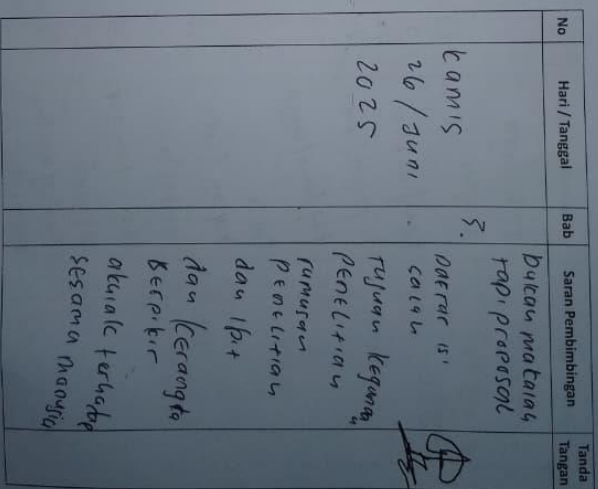 No
Hari / Tanggal
Bab
Saran Pembimbingan
Tanda
Tangan
Kamis
26 / Juni
2025
bukan makalah
tapi proposal
Daftar isi
salah
Tujuan kegunaan
penelitian
rumusan
penelitian
dan
dan kerangka
Berpikir
akhlak terhadap
sesama manusia